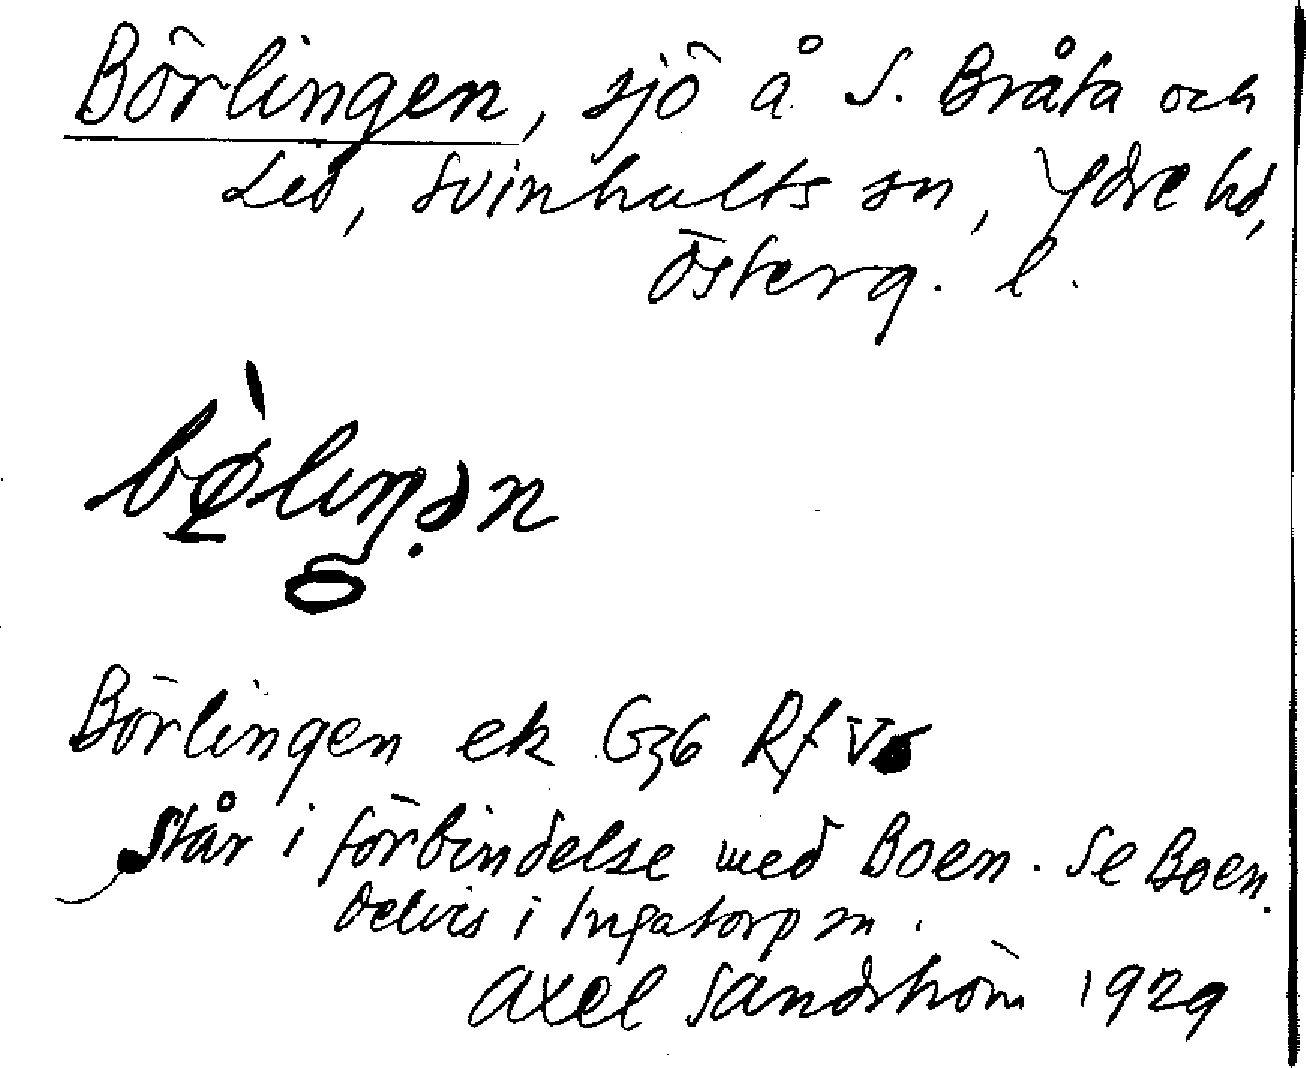 Börlingen, sjö å S. Bråta och
Led, Svinhults sn, Ydre hd,
Österg. l.
bø̀liŋən
Börlingen ek G36 Rf V6
Står i förbindelse med Boen. Se Boen.
Delvis i Ingatorp sn.
Axel Sandström 1929